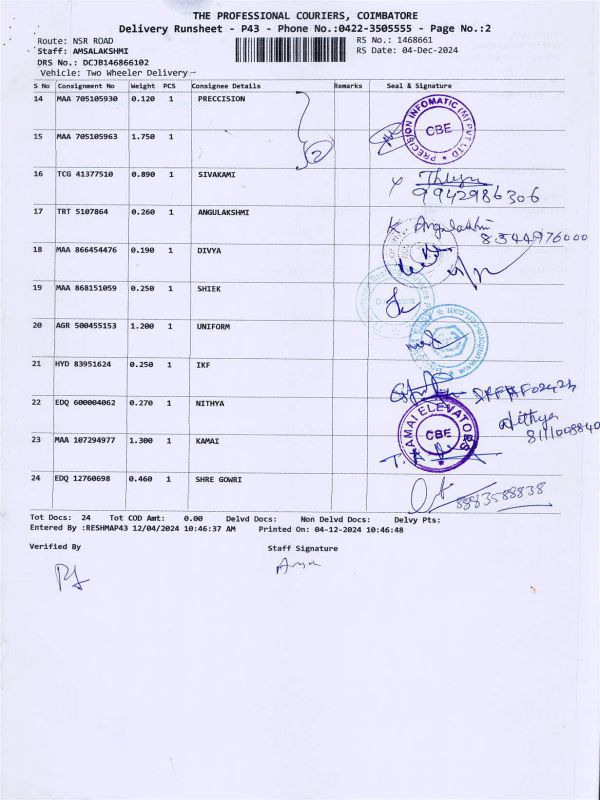 THE PROFESSIONAL COURIERS, COIMBATORE
Delivery Runsheet - P43 - Phone No.:0422-3505555 - Page No.:2
Route: NSR ROAD
RS No.: 1468661
Staff: AMSALAKSHMI
RS Date: 04-Dec-2024
DRS No.: DCJB146866102
Vehicle: Two Wheeler Delivery
S No Consignment No Weight PCS Consignee Details Remarks Seal & Signature
14 MAA 705105930 0.120 1 PRECCISION
PRECISION INFOMATIC (M) PVT LTD
CBE
15 MAA 705105963 1.750 1
2
16 TCG 41377510 0.890 1 SIVAKAMI
9942986306
17 TRT 5107864 0.260 1 ANGULAKSHMI
K. Angulakshmi
8344976000
18 MAA 866454476 0.190 1 DIVYA
19 MAA 868151059 0.250 1 SHIEK
20 AGR 500455153 1.200 1 UNIFORM
21 HYD 83951624 0.250 1 IKF
22 EDQ 600004062 0.270 1 NITHYA
Nithya
KAMAI ELEVATORS
CBE
23 MAA 107294977 1.300 1 KAMAI
24 EDQ 12760698 0.460 1 SHRE GOWRI
8883588838
Tot Docs: 24 Tot COD Amt: 0.00 Delvd Docs: Non Delvd Docs: Delvy Pts:
Entered By :RESHMAP43 12/04/2024 10:46:37 AM Printed On: 04-12-2024 10:46:48
Verified By Staff Signature